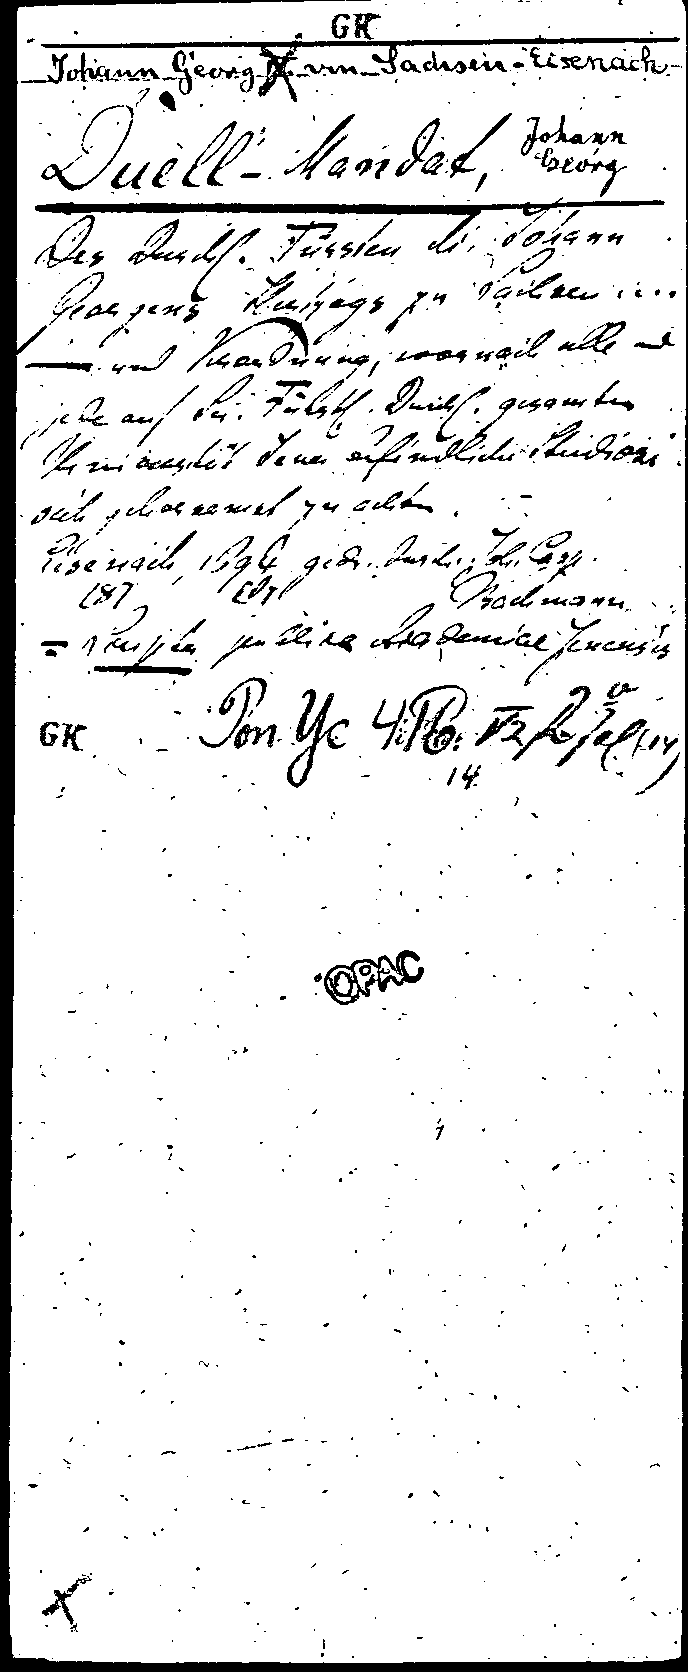 GK
Johann Georg von Sachsen-Eisenach
Duell-Mandat, Johann Georg
Des Durchl. Fürsten Johann
Georgens Hertzogs zu Sachsen ....
— und Verordnung, wornach alle und
jede auf Sr. Fürstl. Durchl. gesamten
Universität Jena befindliche Studiosi
sich gehorsamst zu achten.
Eisenach, 1694 gedr. durch Joh. Casp.
Bachmann
= publica Academiae Jenensis
GK Pon Yc
14
OPAC